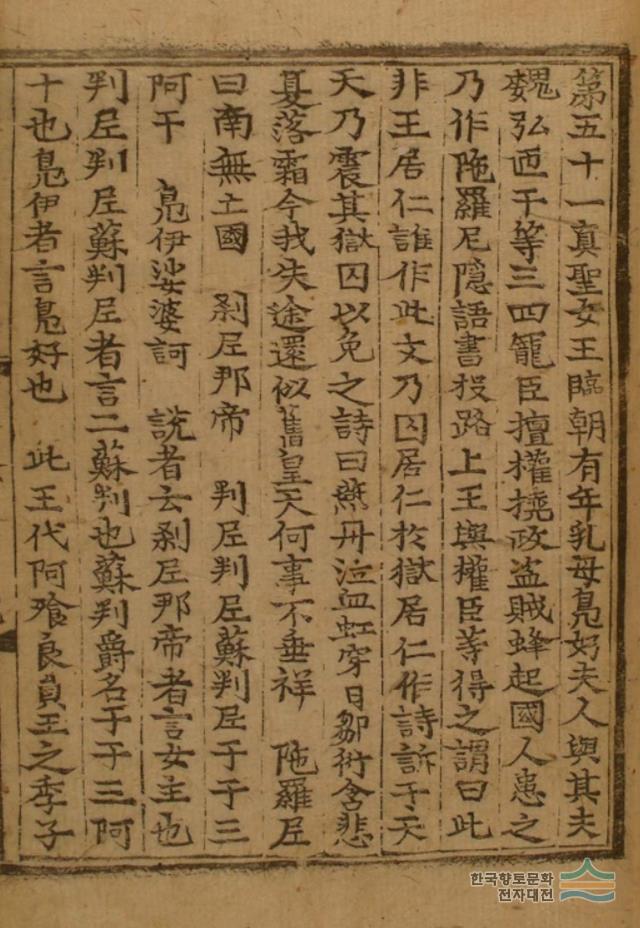 第五十一真聖女王臨朝有年乳母鳧好夫人與其夫
魏弘匝干等三四寵臣擅權撓政盗賊蜂起國人患之
乃作陁羅尼隱語書投路上王與權臣等得之謂曰此
非王居仁誰作此文乃囚居仁於獄居仁作詩訴于天
天乃震其獄囚以免之詩曰燕丹泣血虹穿日鄒衍含悲
夏落霜今我失途還似舊皇天何事不垂祥 陁羅尼
曰南無亡國 刹尼那帝 判尼判尼蘇判尼于于三
阿干 鳧伊娑婆訶 說者云刹尼那帝者言女主也
判尼判尼蘇判尼者言二蘇判也蘇判爵名于于三阿
十也鳧伊者言鳧好也 此王代阿飱良貟王之季子
한국향토문화
전자대전